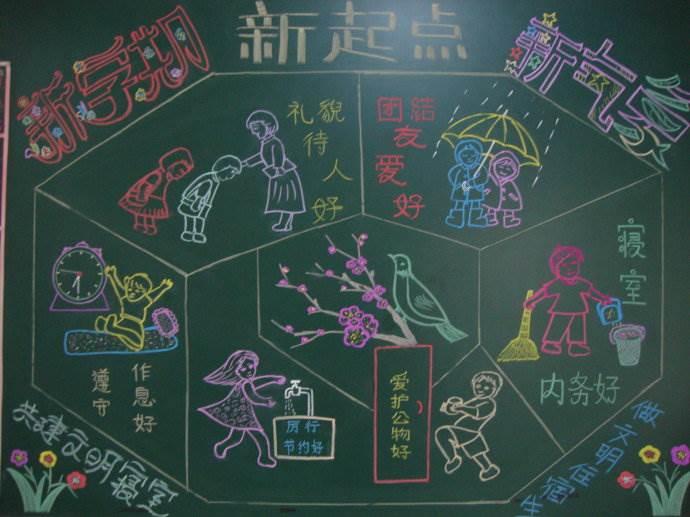 新学期
新起点
新气象
礼貌待人好
团结友爱好
寝室
内务好
遵守
作息好
厉行
节约好
爱护公物好
共建文明寝室
做文明住宿生